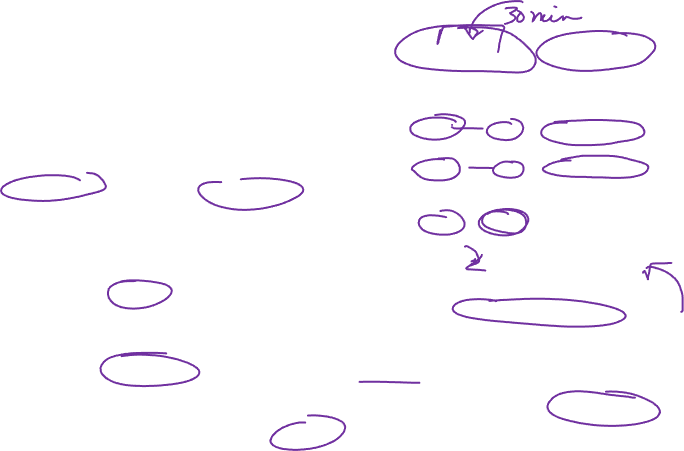 30 min